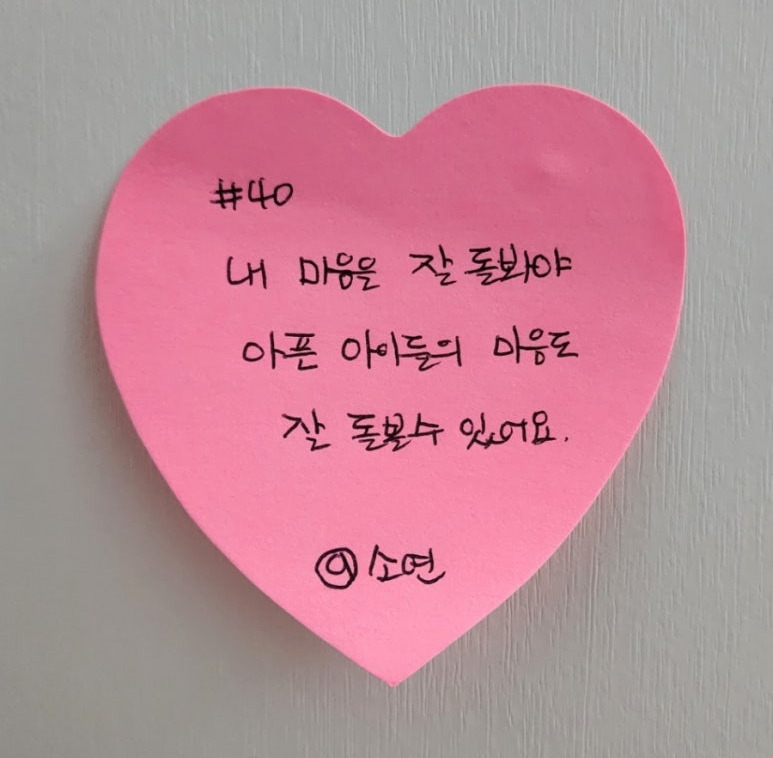 #40
내 마음을 잘 돌봐야
아픈 아이들의 마음도
잘 돌볼수 있어요.
@소연